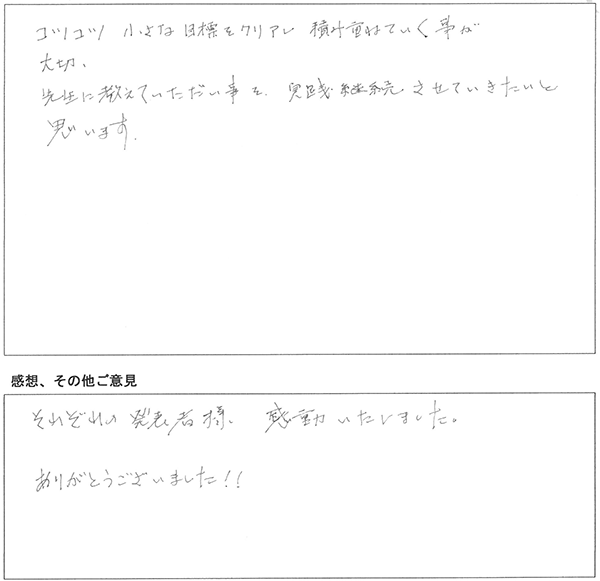 コツコツ 小さな目標をクリアし 積み重ねていく事が
大切、
先生に教えていただい事を、実践、継続、させていきたいと
思います。
感想、その他ご意見
それぞれの発表者様、感動いたしました。
ありがとうございました!!